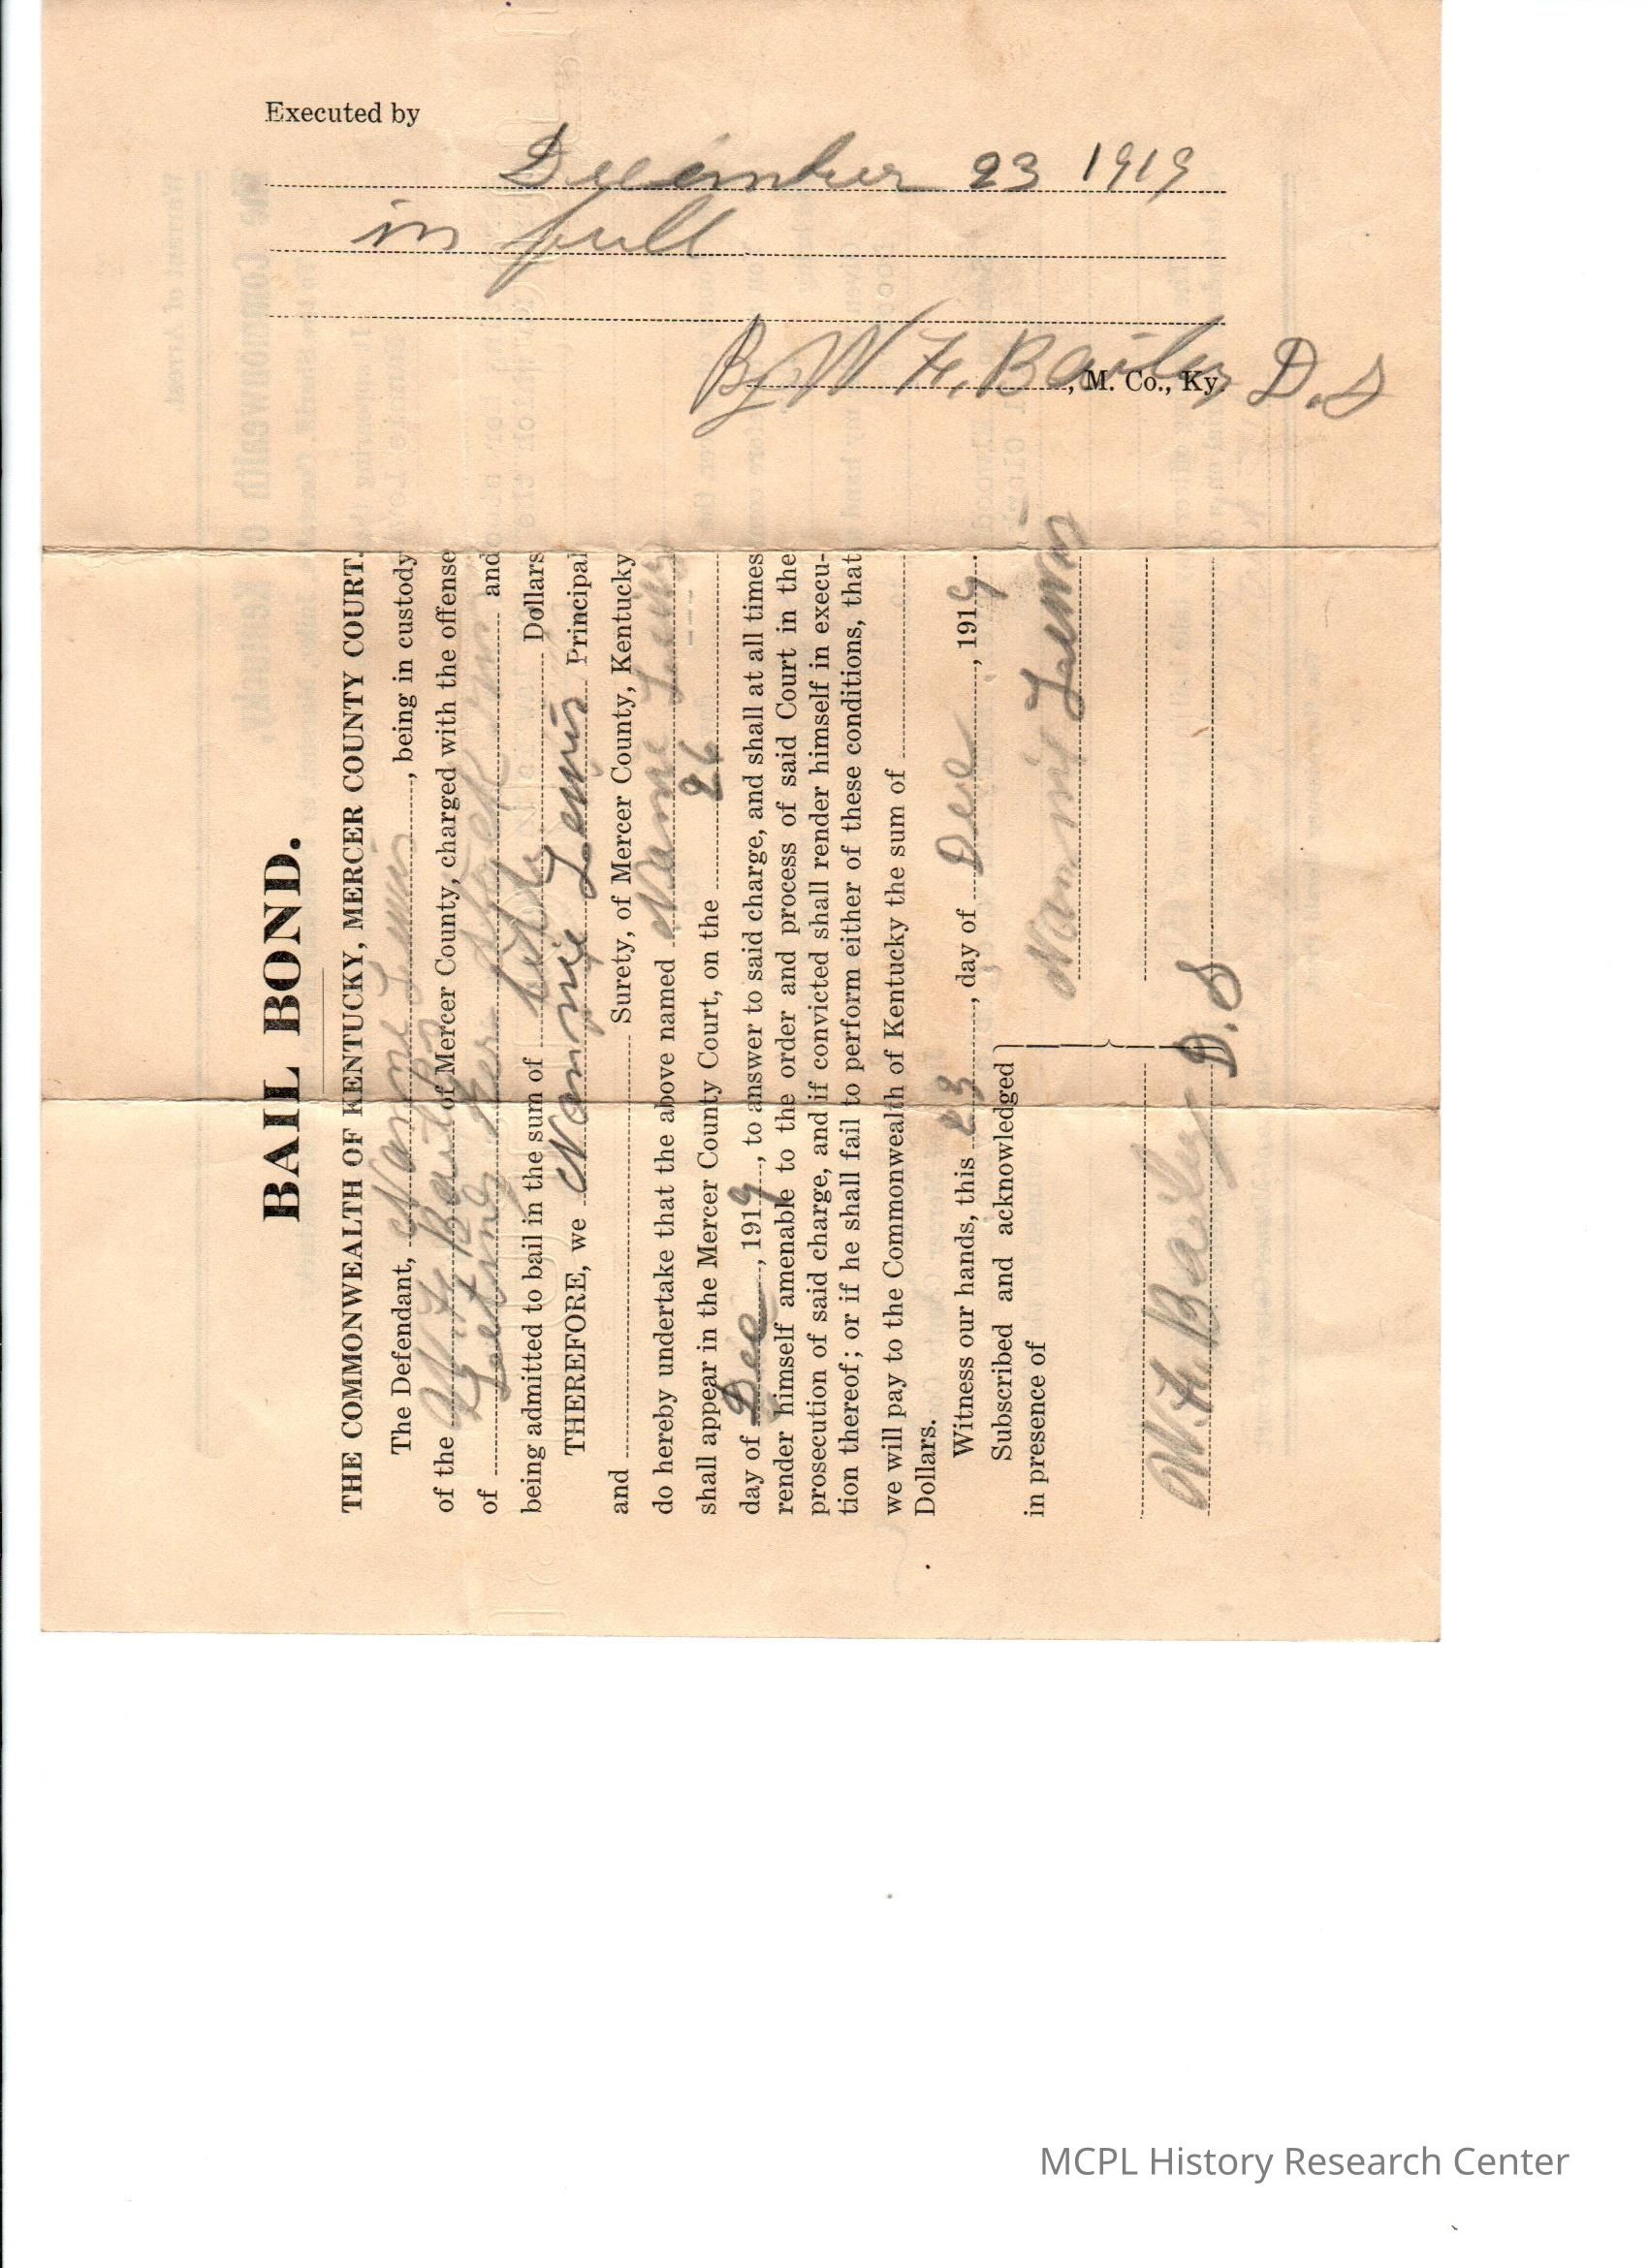 Executed by
December 23 1919
in full
By W H. Bailey D.S
, M. Co., Ky.
BAIL BOND.
THE COMMONWEALTH OF KENTUCKY, MERCER COUNTY COURT.
The Defendant, Nannie Lewis, being in custody
of the W. H. Bailey of Mercer County, charged with the offense
of Letting her stock run and
being admitted to bail in the sum of fifty Dollars
THEREFORE, we Nannie Lewis Principal
and Surety, of Mercer County, Kentucky
do hereby undertake that the above named Nannie Lewis
shall appear in the Mercer County Court, on the 26
day of Dec, 1919, to answer to said charge, and shall at all times
render himself amenable to the order and process of said Court in the
prosecution of said charge, and if convicted shall render himself in execu-
tion thereof; or if he shall fail to perform either of these conditions, that
we will pay to the Commonwealth of Kentucky the sum of
Dollars.
Witness our hands, this 23, day of Dec, 1919.
Subscribed and acknowledged
in presence of
Nannie Lewis
W. H. Bailey D.S
MCPL History Research Center